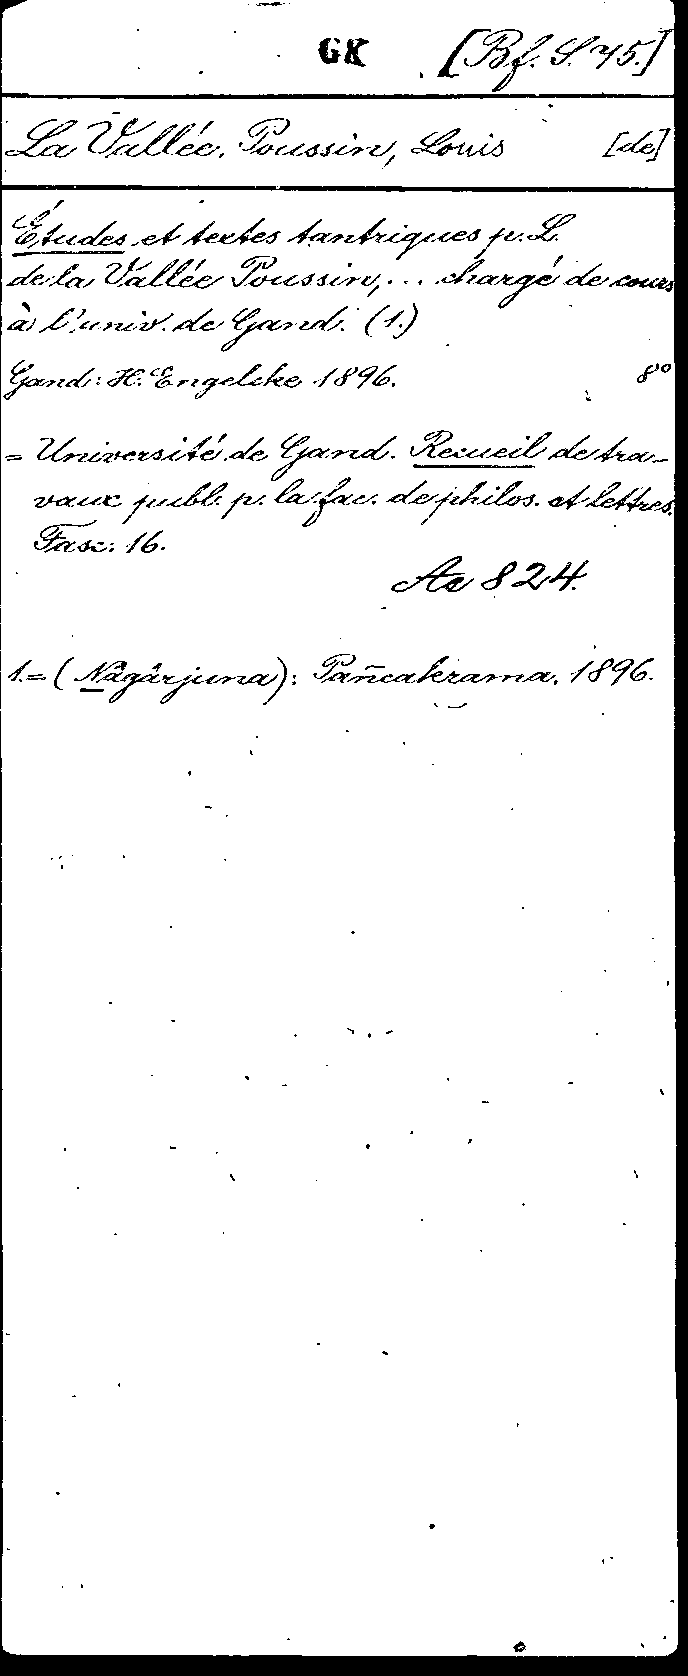 GK [Bf. S. 45.]
La Vallée Poussin, Louis [de]
Études et textes tantriques p. L.
de la Vallée Poussin, ... chargé de cours
à l'univ. de Gand. (1.)
Gand: H. Engelcke 1896. 8°
= Université de Gand. Recueil de tra-
vaux publ. p. la fac. de philos. et lettres.
Fasc. 16.
Ac 824.
1.= (Nâgârjuna): Pañcakrama. 1896.